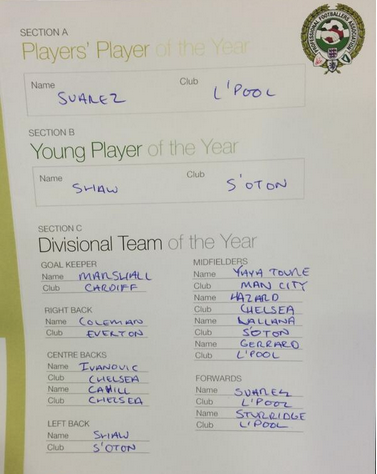 SECTION A
Players' Player of the Year
Name SUAREZ Club L'POOL
SECTION B
Young Player of the Year
Name SHAW Club S'OTON
SECTION C
Divisional Team of the Year
GOAL KEEPER
Name MARSHALL
Club CARDIFF
RIGHT BACK
Name COLEMAN
Club EVERTON
CENTRE BACKS
Name IVANOVIC
Club CHELSEA
Name CAHILL
Club CHELSEA
LEFT BACK
Name SHAW
Club S'OTON
MIDFIELDERS
Name YAYA TOURE
Club MAN CITY
Name HAZARD
Club CHELSEA
Name LALLANA
Club SOTON
Name GERRARD
Club L'POOL
FORWARDS
Name SUAREZ
Club L'POOL
Name STURRIDGE
Club L'POOL
PROFESSIONAL FOOTBALLERS ASSOCIATION